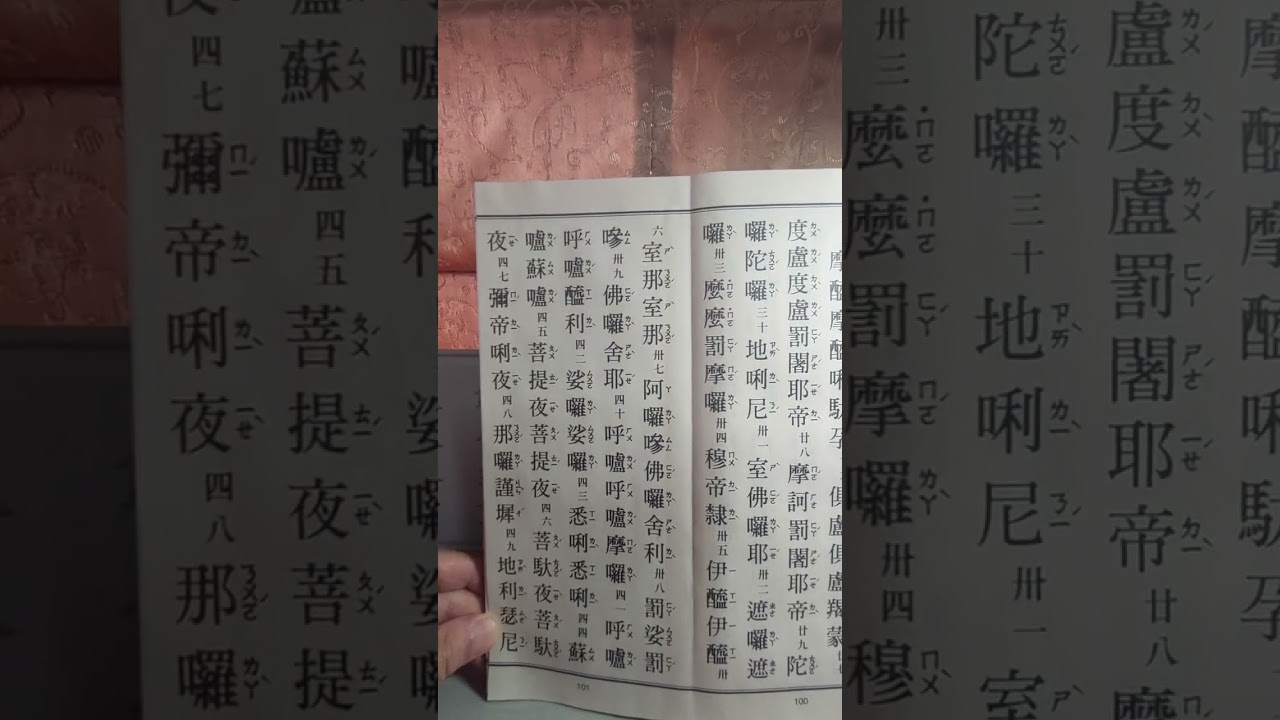 摩醯摩醯唎馱孕
俱盧俱盧羯蒙
度盧度盧罰闍耶帝廿八摩訶罰闍耶帝廿九陀
囉陀囉三十地唎尼卅一室佛囉耶卅二遮囉遮
囉卅三麼麼罰摩囉卅四穆帝隸卅五伊醯伊醯卅
六室那室那卅七阿囉嘇佛囉舍利卅八罰娑罰
嘇卅九佛囉舍耶四十呼嚧呼嚧摩囉四一呼嚧
呼嚧醯利四二娑囉娑囉四三悉唎悉唎四四蘇
嚧蘇嚧四五菩提夜菩提夜四六菩馱夜菩馱
夜四七彌帝唎夜四八那囉謹墀四九地利瑟尼
100
101